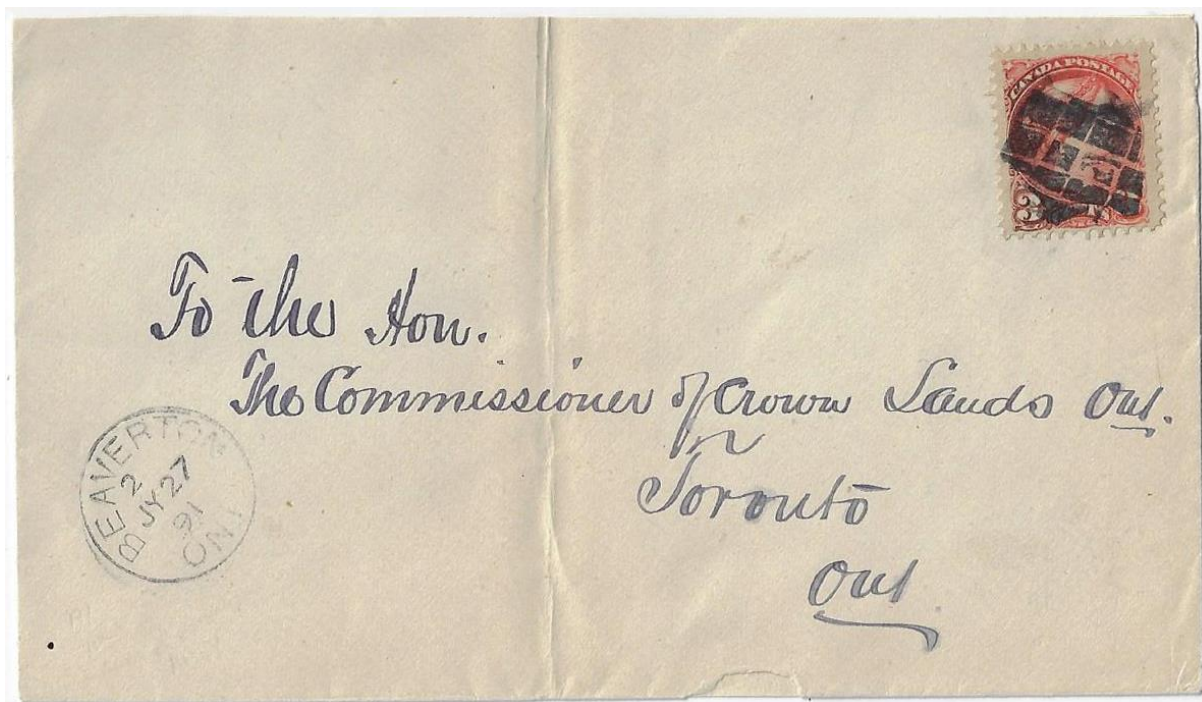 CANADA POSTAGE
3
To the Hon.
The Commissioner of Crown Lands Ont.
Toronto
Ont
BEAVERTON
2
JY 27
91
ONT